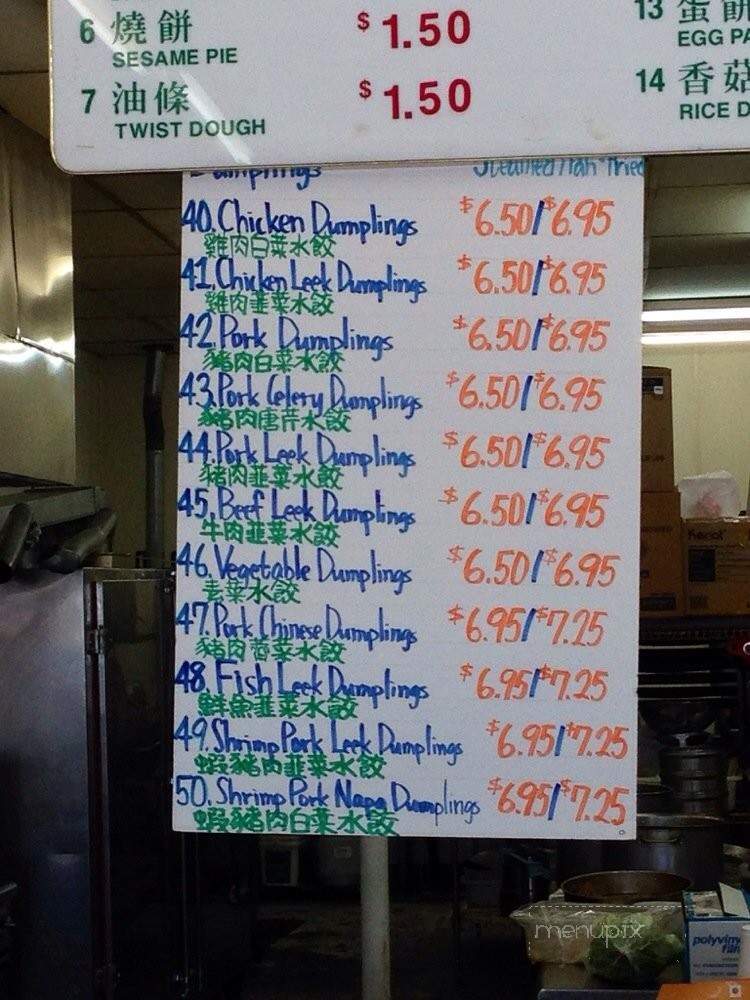 6 燒餅 $1.50
SESAME PIE
7 油條 $1.50
TWIST DOUGH
13 蛋餅
EGG PA
14 香菇
RICE D
Dumplings Steamed/Pan Fried
40. Chicken Dumplings $6.50/$6.95
雞肉白菜水餃
41. Chicken Leek Dumplings $6.50/$6.95
雞肉韭菜水餃
42. Pork Dumplings $6.50/$6.95
豬肉白菜水餃
43. Pork Celery Dumplings $6.50/$6.95
豬肉唐芹水餃
44. Pork Leek Dumplings $6.50/$6.95
豬肉韭菜水餃
45. Beef Leek Dumplings $6.50/$6.95
牛肉韭菜水餃
46. Vegetable Dumplings $6.50/$6.95
素菜水餃
47. Pork Chinese Dumplings $6.95/$7.25
豬肉薺菜水餃
48. Fish Leek Dumplings $6.95/$7.25
鮮魚韭菜水餃
49. Shrimp Pork Leek Dumplings $6.95/$7.25
蝦豬肉韭菜水餃
50. Shrimp Pork Napa Dumplings $6.95/$7.25
蝦豬肉白菜水餃
menupix
polyvin
film